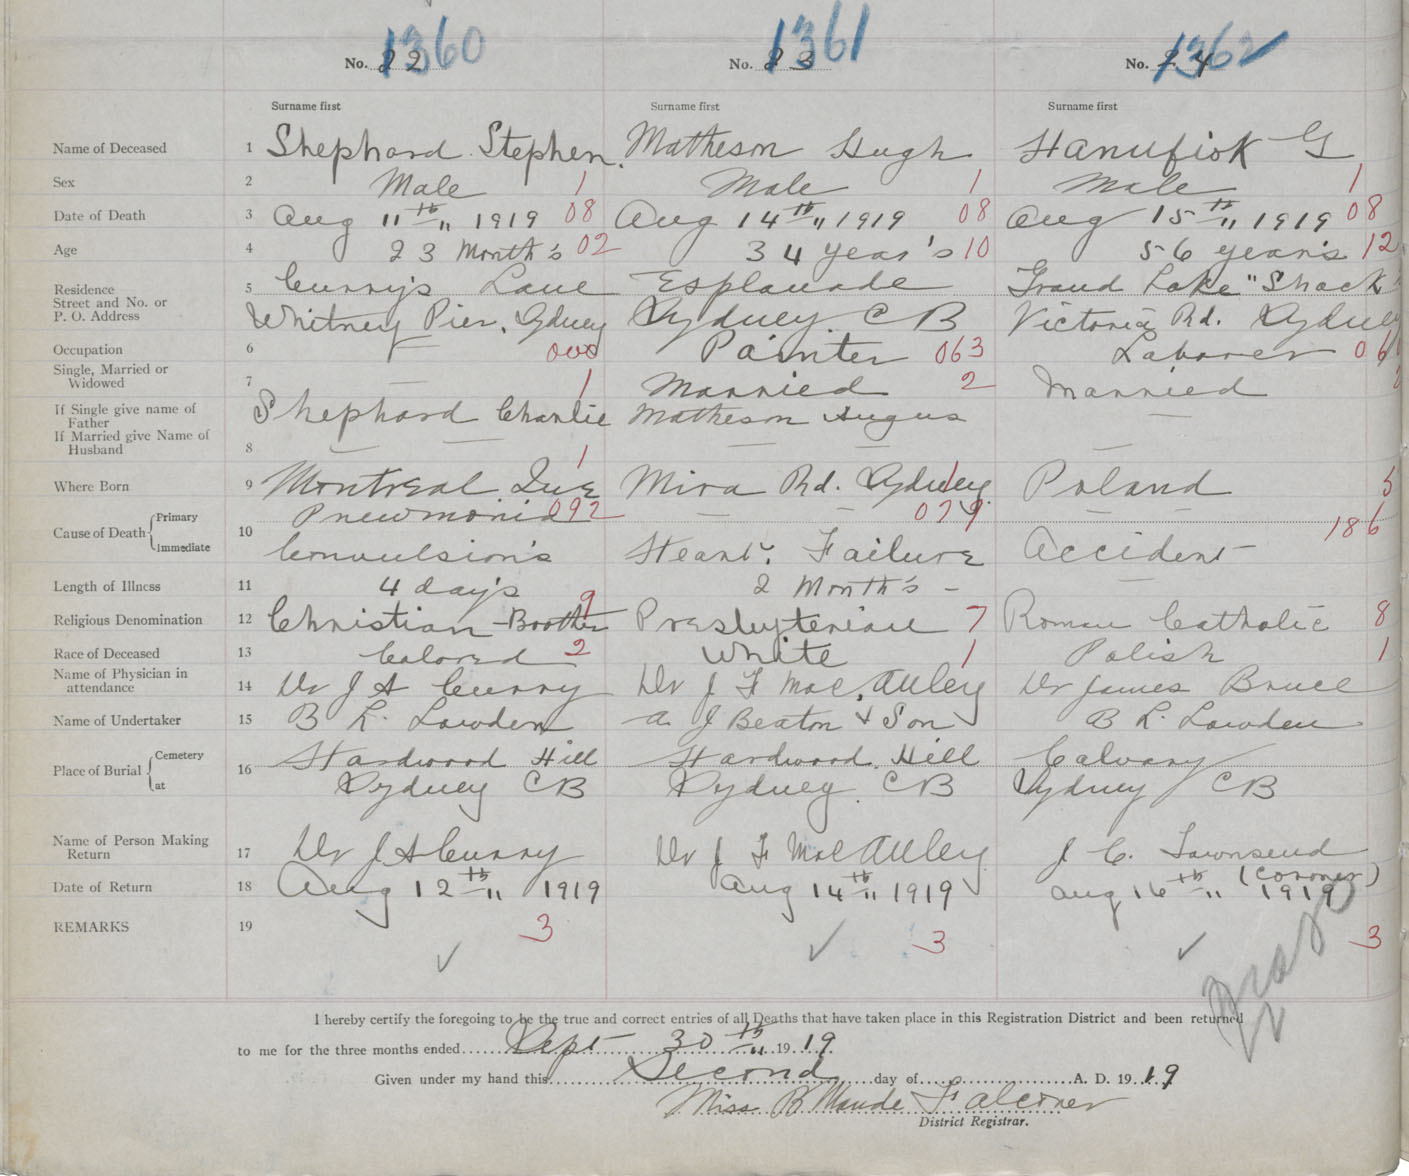 1360 1361 1362
No. 22 No. 23 No. 24
Surname first Surname first Surname first
Name of Deceased 1 Shephard Stephen Matheson Hugh Hanufiok G
Sex 2 Male 1 Male 1 Male 1
Date of Death 3 Aug 11th " 1919 08 Aug 14th " 1919 08 Aug 15th " 1919 08
Age 4 23 Month's 02 34 year's 10 56 year's 12
Residence 5 Curry's Lane Esplanade Grand Lake "Shack"
Street and No. or
P. O. Address Whitney Pier, Sydney Sydney C B Victoria Rd. Sydney
Occupation 6 — 000 Painter 063 Laborer 06
Single, Married or
Widowed 7 — 1 Married 2 Married
If Single give name of
Father Shephard Charlie Matheson Angus —
If Married give Name of
Husband 8 — 1 — —
Where Born 9 Montreal Que Mira Rd. Sydney 1 Poland 5
Cause of Death { Primary Pneumonia 092 — — 079 — — 186
10
Immediate Convulsion's Heart Failure Accident
Length of Illness 11 4 day's 2 Month's — —
Religious Denomination 12 Christian-Boother 9 Presbyterian 7 Roman Catholic 8
Race of Deceased 13 Colored 2 White 1 Polish 1
Name of Physician in
attendance 14 Dr J A Curry Dr J F MacAuley Dr James Bruce
Name of Undertaker 15 B L. Lowden A. J Beaton & Son B L. Lowden
Place of Burial { Cemetery 16 Hardwood Hill Hardwood Hill Calvary
at Sydney C B Sydney C B Sydney C B
Name of Person Making
Return 17 Dr J A Curry Dr J F MacAuley J C. Townsend
(Coroner)
Date of Return 18 Aug 12th " 1919 Aug 14th " 1919 Aug 16th " 1919
REMARKS 19 3 3 3
I hereby certify the foregoing to be the true and correct entries of all Deaths that have taken place in this Registration District and been returned
to me for the three months ended Sept 30th " 1919.
Given under my hand this Second day of A. D. 1919
Miss B Maude Falconer
District Registrar.